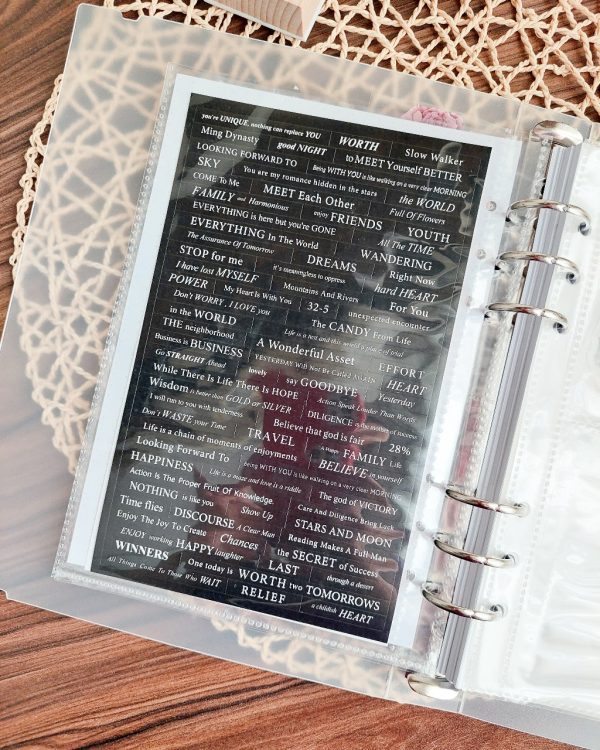 you're UNIQUE, nothing can replace YOU WORTH
Ming Dynasty good NIGHT to MEET Yourself BETTER Slow Walker
LOOKING FORWARD TO Being WITH YOU is like walking on a very clear MORNING
SKY You are my romance hidden in the stars the WORLD
COME To Me MEET Each Other Full Of Flowers
FAMILY and Harmonious enjoy FRIENDS YOUTH
EVERYTHING is here but you're GONE All The TIME
EVERYTHING In The World WANDERING
The Assurance Of Tomorrow DREAMS Right Now
STOP for me it's meaningless to oppress hard HEART
I have lost MYSELF Mountains And Rivers For You
POWER My Heart Is With You 32-5 unexpected encounter
Don't WORRY, I LOVE you The CANDY From Life
in the WORLD Life is a test and this world a place of trial
THE neighborhood A Wonderful Asset EFFORT
Business is BUSINESS YESTERDAY Will Not Be Called AGAIN HEART
Go STRAIGHT Ahead lovely say GOODBYE Yesterday
While There Is Life There Is HOPE Action Speak Louder Than Words
Wisdom is better than GOLD or SILVER DILIGENCE is the mother of success
I will run to you with tenderness Believe that god is fair 28%
Don't WASTE your Time TRAVEL A Happy FAMILY Life
Life is a chain of moments of enjoyments BELIEVE in yourself
Looking Forward To Being WITH YOU is like walking on a very clear MORNING
HAPPINESS Life is a maze and love is a riddle The god of VICTORY
Action Is The Proper Fruit Of Knowledge. Care And Diligence Bring Luck
NOTHING is like you Show Up STARS AND MOON
Time flies DISCOURSE A Clear Man Reading Makes A Full Man
Enjoy The Joy To Create Chances the SECRET of Success
ENJOY working HAPPY laughter LAST through a desert
WINNERS One today is WORTH two TOMORROWS
All Things Come To Those Who WAIT RELIEF a childish HEART